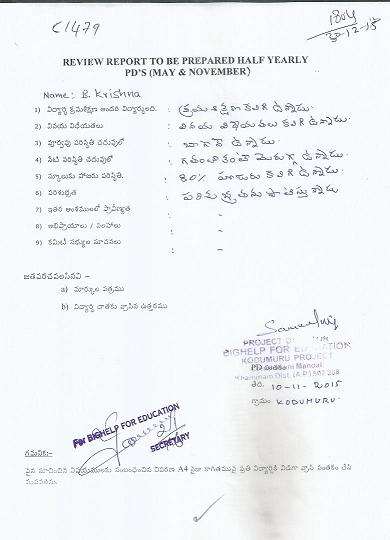 C1479
1804
30-12-15
REVIEW REPORT TO BE PREPARED HALF YEARLY
PD'S (MAY & NOVEMBER)
Name: B. Krishna
1) విద్యార్థి క్రమశిక్షణ అందరి విద్యార్థులది. : క్రమశిక్షణ కలిగి ఉన్నాడు.
2) వినయ విధేయతలు : వినయ విధేయతలు కలిగి ఉన్నాడు.
3) పూర్వపు పరిస్థితి చదువులో : బాగానే ఉన్నాడు.
4) నేటి పరిస్థితి చదువులో : గతంకంటే మెరుగ్గ ఉన్నాడు.
5) స్కూలుకు హాజరు పరిస్థితి. : 80% హాజరు కలిగి ఉన్నాడు.
6) పరిశుభ్రత : పరిశుభ్రతను పాటిస్తున్నాడు
7) ఇతర అంశములలో ప్రావీణ్యత : -
8) అభిప్రాయాలు / సలహాలు : -
9) కమిటీ సభ్యుల సూచనలు : -
జతపరచవలసినవి :-
a) మార్కుల పత్రము
b) విద్యార్థి దాతకు వ్రాసిన ఉత్తరము
PROJECT
BIGHELP FOR EDUCATION
KODUMURU PROJECT
Mandal,
Khammam Dist. (A.P) 507
PD సంతకం
తేది. 10-11-2015
గ్రామం KODUMURU.
For BIGHELP FOR EDUCATION
SECRETARY
గమనిక:-
పైన సూచించిన విషయములను సంబంధించిన వివరణ A4 సైజు కాగితముపై ప్రతి విద్యార్థికి విడిగా వ్రాసి సంతకం చేసి